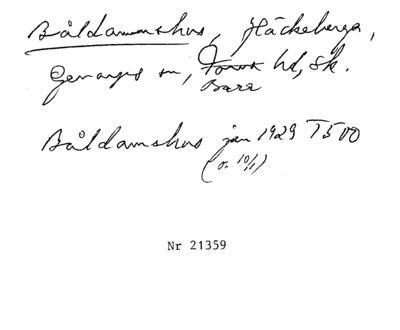 Båldamshus, Häckeberga,
Genarps sn, Torna hd, Sk.
Bara
Båldamshus jan 1929 T500
(o. 10/1)
Nr 21359